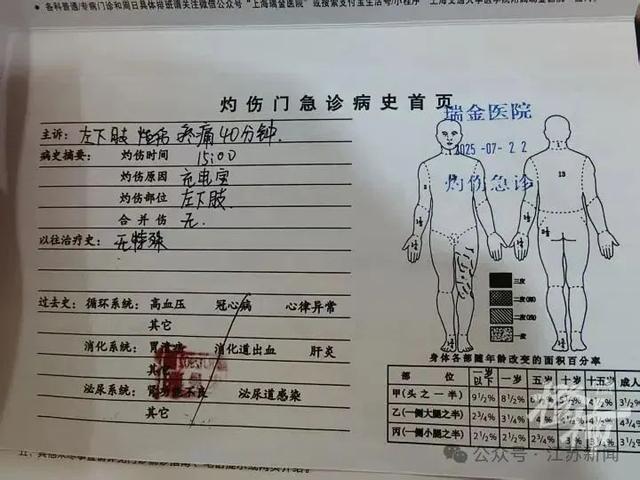 各科普通/专病门诊和周日具体排班请关注微信公众号"上海瑞金医院"或搜索支付宝生活号/小程序
灼伤门急诊病史首页
瑞金医院
2025-07-22
灼伤急诊
主诉: 左下肢 疼痛40分钟.
病史摘要: 灼伤时间 15:00
灼伤原因 充电宝
灼伤部位 左下肢.
合并伤 无.
以往治疗史: 无特殊
过去史: 循环系统: 高血压 冠心病 心律异常
其它
消化系统: 胃溃疡 消化道出血 肝炎
其它
泌尿系统: 肾功能不良 泌尿道感染
其它
13
三度
二度(深)
二度(浅)
一度
身体各部随年龄改变的面积百分率
部 位 一岁以下 一岁 五岁 十岁 十五岁 成人
甲(头之一半) 9½% 8½% 3½%
乙(一侧大腿之半) 2¾% 3¼% 4¾%
丙(一侧小腿之半) 2½% 2½% 3½%
公众号·江苏新闻